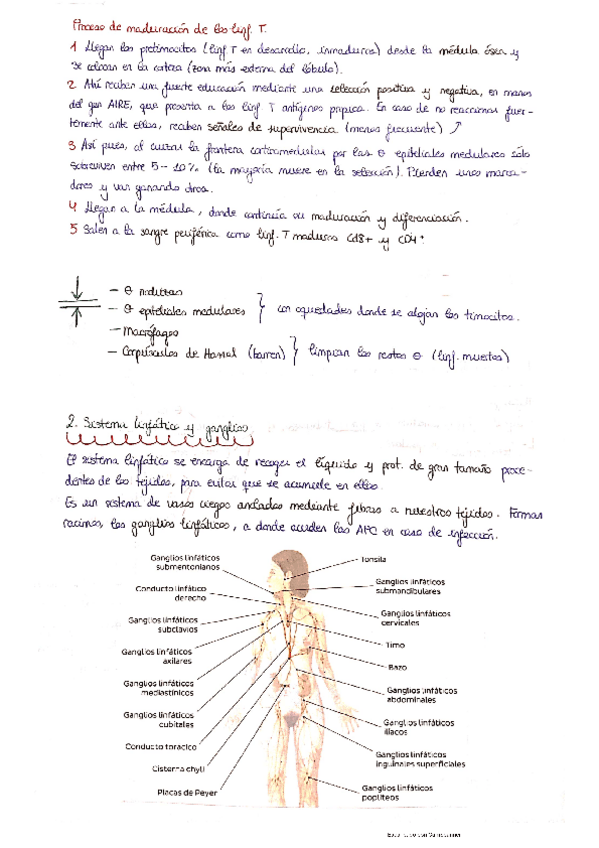 Proceso de maduración de los linf. T.
1 Llegan los protimocitos (linf T en desarrollo, inmaduros) desde la médula ósea y
se colocan en la corteza (zona más externa del lóbulo).
2 Ahí reciben una fuerte educación mediante una selección positiva y negativa, en manos
del gen AIRE, que presenta a los linf. T antígenos propios. En caso de no reaccionar fuer-
temente ante ellos, reciben señales de supervivencia (menos frecuente)
3 Así pues, al cruzar la frontera corticomedular por las θ epiteliales medulares sólo
sobreviven entre 5-10% (la mayoría muere en la selección). Pierden unos marca-
dores y van ganando otros.
4 Llegan a la médula, donde continúa su maduración y diferenciación.
5 Salen a la sangre periférica como linf. T maduros CD8+ y CD4+
— θ nodrizas
— θ epiteliales medulares } con oquedades donde se alojan los timocitos.
— Macrófagos
— Corpúsculos de Hassal (barren) } limpian los restos θ (linf. muertos)
2. Sistema linfático y ganglios
El sistema linfático se encarga de recoger el líquido y prot. de gran tamaño proce-
dentes de los tejidos, para evitar que se acumule en ellos.
Es un sistema de vasos ciegos anclados mediante fibras a nuestros tejidos. Forman
racimos, los ganglios linfáticos, a donde acuden las APC en caso de infección.
Ganglios linfáticos
submentonianos
Conducto linfático
derecho
Ganglios linfáticos
subclavios
Ganglios linfáticos
axilares
Ganglios linfáticos
mediastínicos
Ganglios linfáticos
cubitales
Conducto torácico
Cisterna chyli
Placas de Peyer
Tonsila
Ganglios linfáticos
submandibulares
Ganglios linfáticos
cervicales
Timo
Bazo
Ganglios linfáticos
abdominales
Ganglios linfáticos
ilíacos
Ganglios linfáticos
inguinales superficiales
Ganglios linfáticos
poplíteos